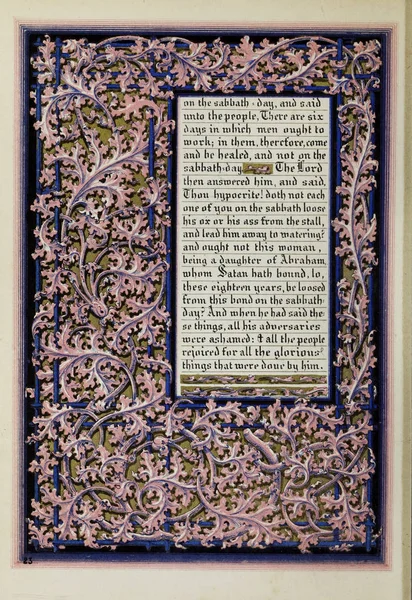 on the sabbath-day, and said
unto the people, There are six
days in which men ought to
work; in them, therefore, come
and be healed, and not on the
sabbath-day. The Lord
then answered him, and said,
Thou hypocrite! doth not each
one of you on the sabbath loose
his ox or his ass from the stall,
and lead him away to watering?
and ought not this woman,
being a daughter of Abraham,
whom Satan hath bound, lo,
these eighteen years, be loosed
from this bond on the sabbath-
day? And when he had said the-
se things, all his adversaries
were ashamed: & all the people
rejoiced for all the glorious
things that were done by him.
23